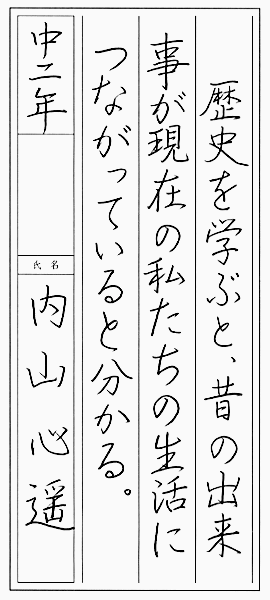 歴史を学ぶと、昔の出来
事が現在の私たちの生活に
つながっていると分かる。
中二年
氏名
内山心遥